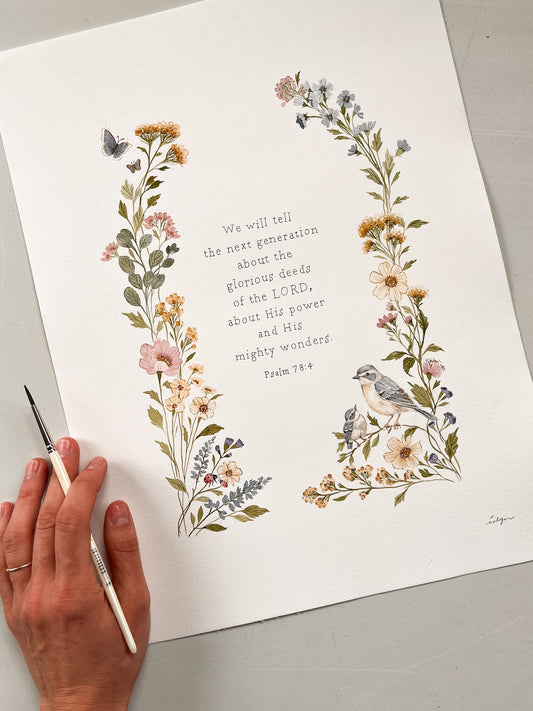 We will tell
the next generation
about the
glorious deeds
of the LORD,
about His power
and His
mighty wonders.
Psalm 78:4